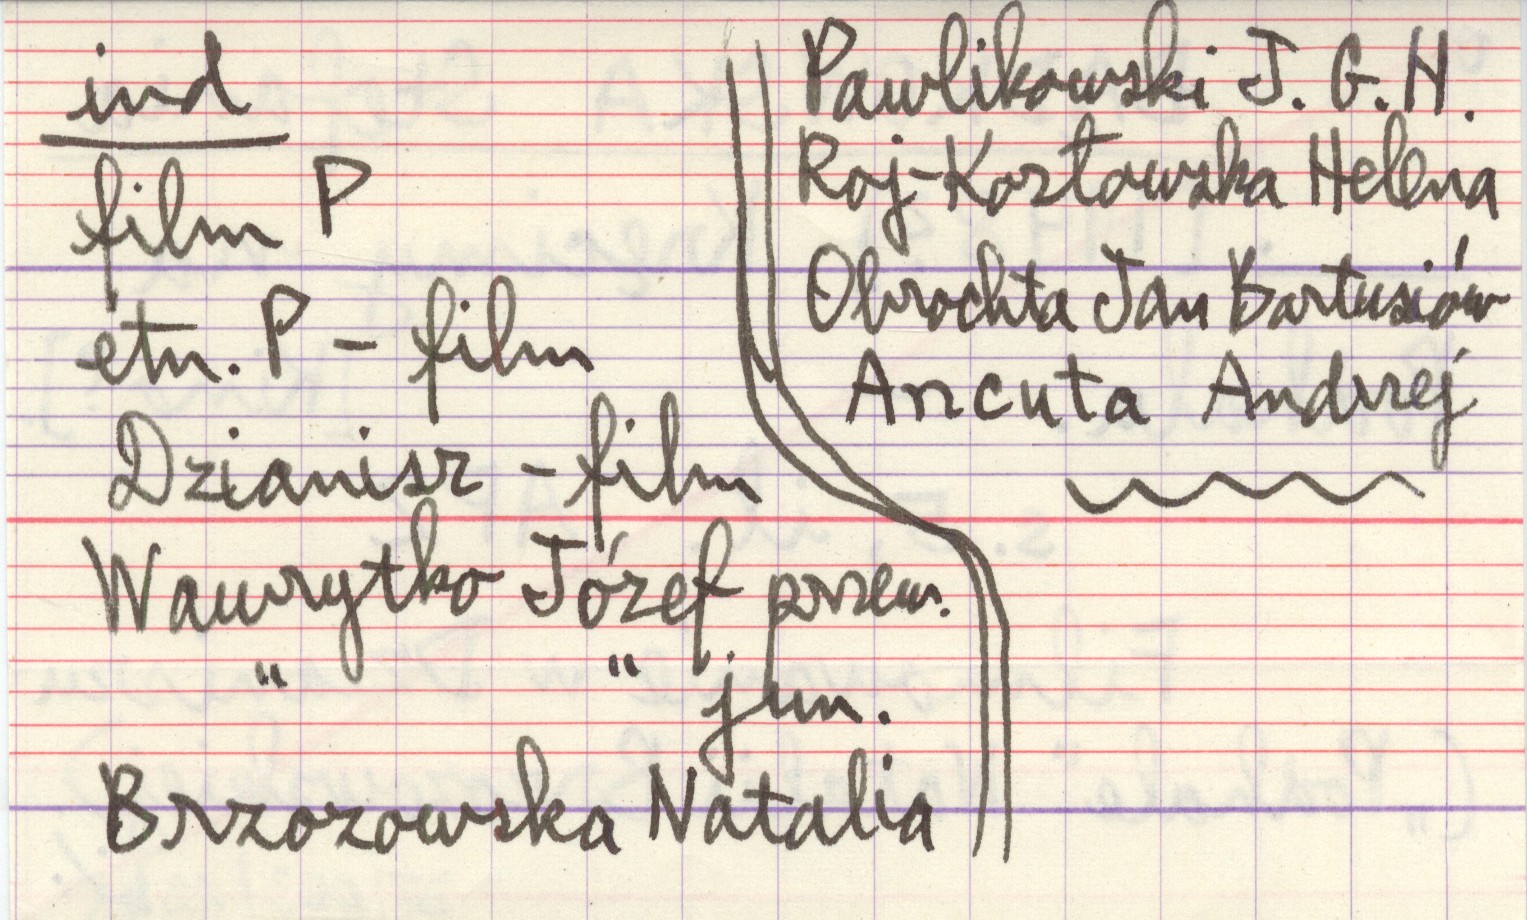 ind
film P
etn. P - film
Dzianisz - film
Wawrytko Józef przew.
" " jun.
Brzozowska Natalia
Pawlikowski J. G. H.
Roj-Kozłowska Helena
Obrochta Jan Bartusiów
Ancuta Andrzej